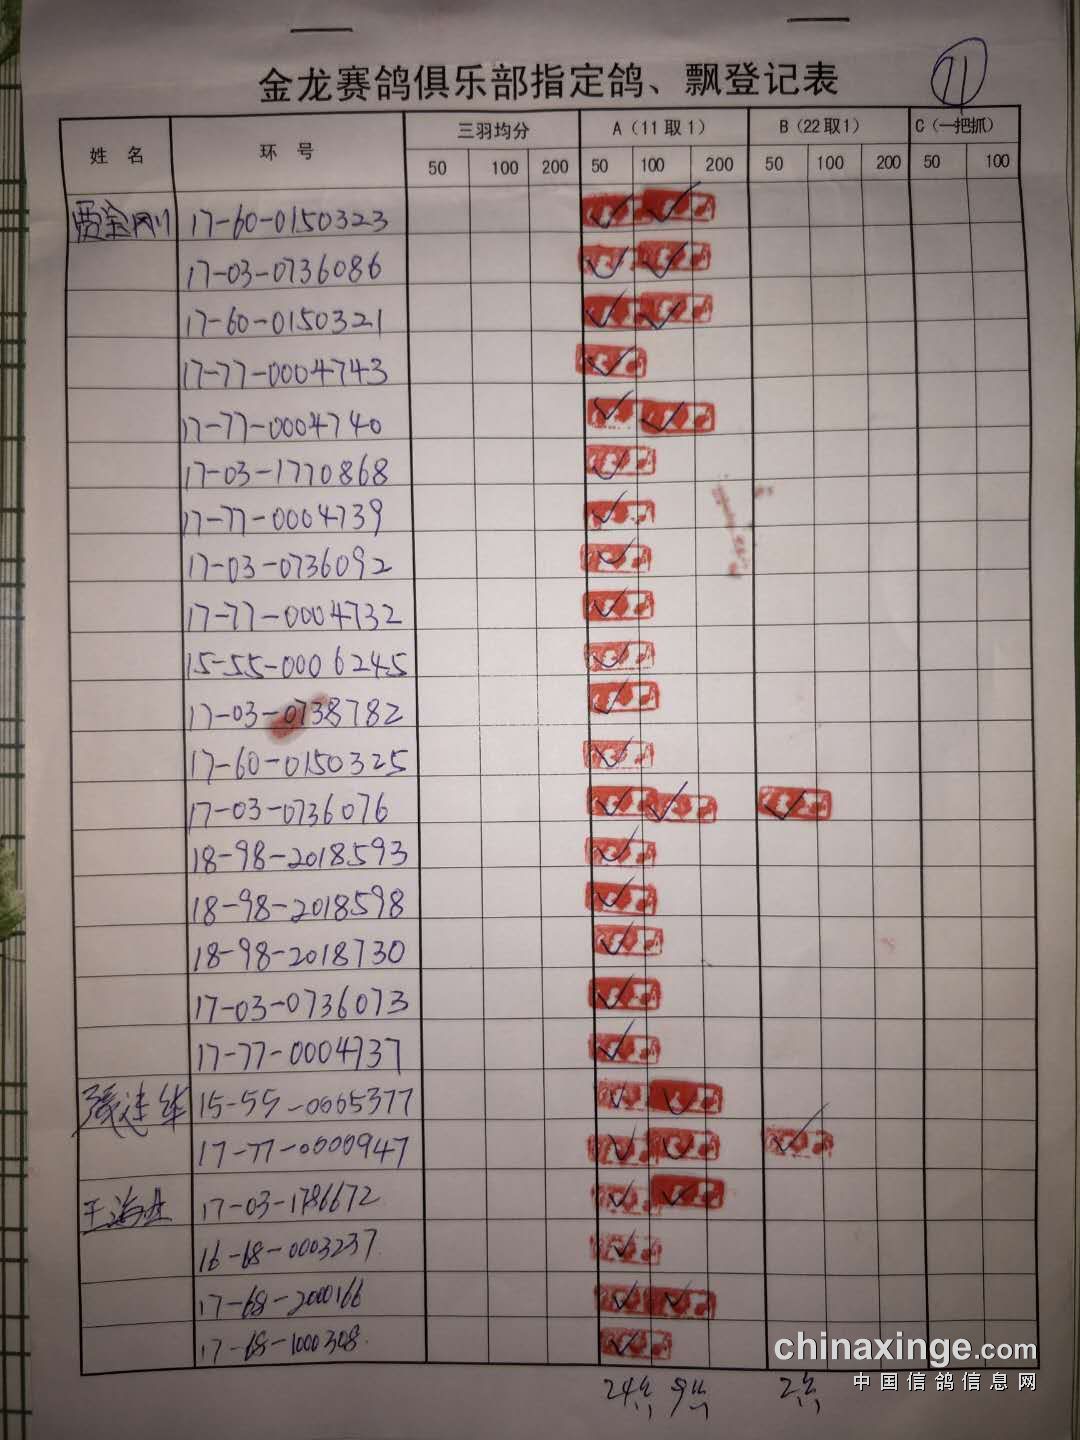 71
金龙赛鸽俱乐部指定鸽、飘登记表
姓 名 环 号 三羽均分 A（11取1） B（22取1） C（一把抓）
50 100 200 50 100 200 50 100 200 50 100
贾金刚 17-60-0150323 ✓ ✓
17-03-0736086 ✓ ✓
17-60-0150321 ✓ ✓
17-77-0004743 ✓
17-77-0004740 ✓ ✓
17-03-1770868 ✓
17-77-0004739 ✓
17-03-0736092 ✓
17-77-0004732 ✓
15-55-0006245 ✓
17-03-0738782 ✓
17-60-0150325 ✓
17-03-0736076 ✓ ✓ ✓
18-98-2018593 ✓
18-98-2018598 ✓
18-98-2018730 ✓
17-03-0736073 ✓
17-77-0004737 ✓
张连华 15-55-0005377 ✓ ✓
17-77-0000947 ✓ ✓ ✓
17-03-1786672 ✓ ✓
16-68-0003237 ✓
17-68-2000166 ✓ ✓
17-68-1000308 ✓
24 9 2
chinaxinge.com
中国信鸽信息网